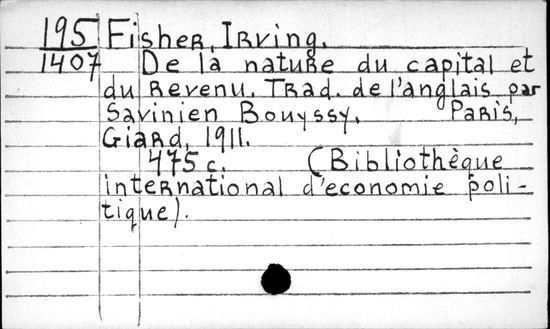 195 Fisher, Irving.
1407 De la nature du capital et
du revenu. Trad. de l'anglais par
Savinien Bouyssy. Paris,
Giard, 1911.
475 c. (Bibliothèque
international d'economie poli-
tique).